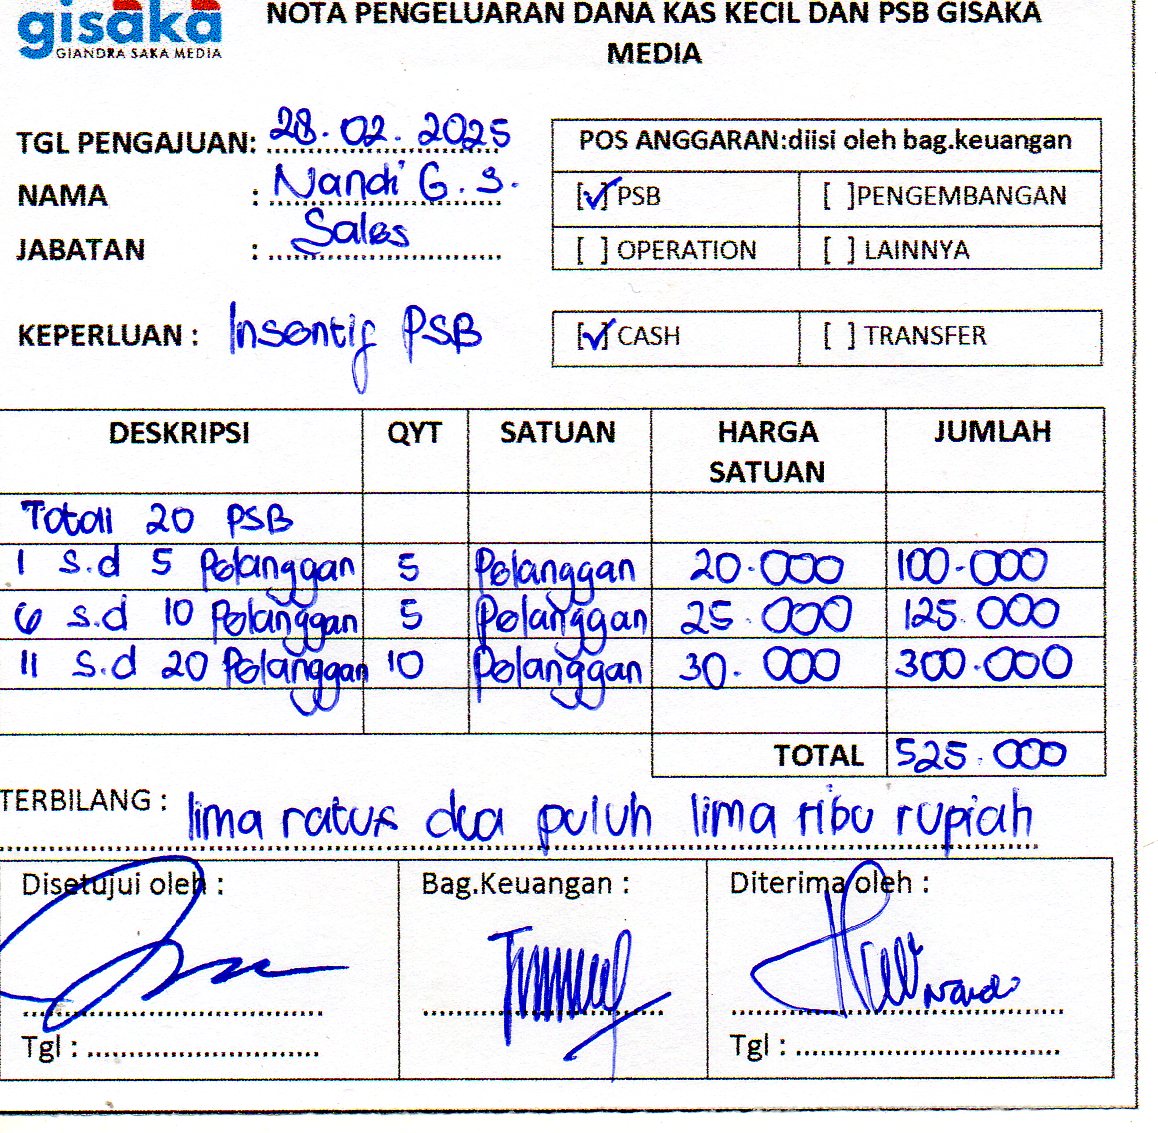 gisaka
GIANDRA SAKA MEDIA
NOTA PENGELUARAN DANA KAS KECIL DAN PSB GISAKA
MEDIA
TGL PENGAJUAN: 28.02.2025
NAMA : Nandi G.S.
JABATAN : Sales
POS ANGGARAN:diisi oleh bag.keuangan
[✓] PSB [ ]PENGEMBANGAN
[ ] OPERATION [ ] LAINNYA
KEPERLUAN : Insentif PSB
[✓] CASH [ ] TRANSFER
DESKRIPSI QYT SATUAN HARGA SATUAN JUMLAH
Total 20 PSB
1 s.d 5 Pelanggan 5 Pelanggan 20.000 100.000
6 s.d 10 Pelanggan 5 Pelanggan 25.000 125.000
11 s.d 20 Pelanggan 10 Pelanggan 30.000 300.000
TOTAL 525.000
TERBILANG : lima ratus dua puluh lima ribu rupiah
Disetujui oleh : Bag.Keuangan : Diterima oleh :
Nandi
Tgl : Tgl :